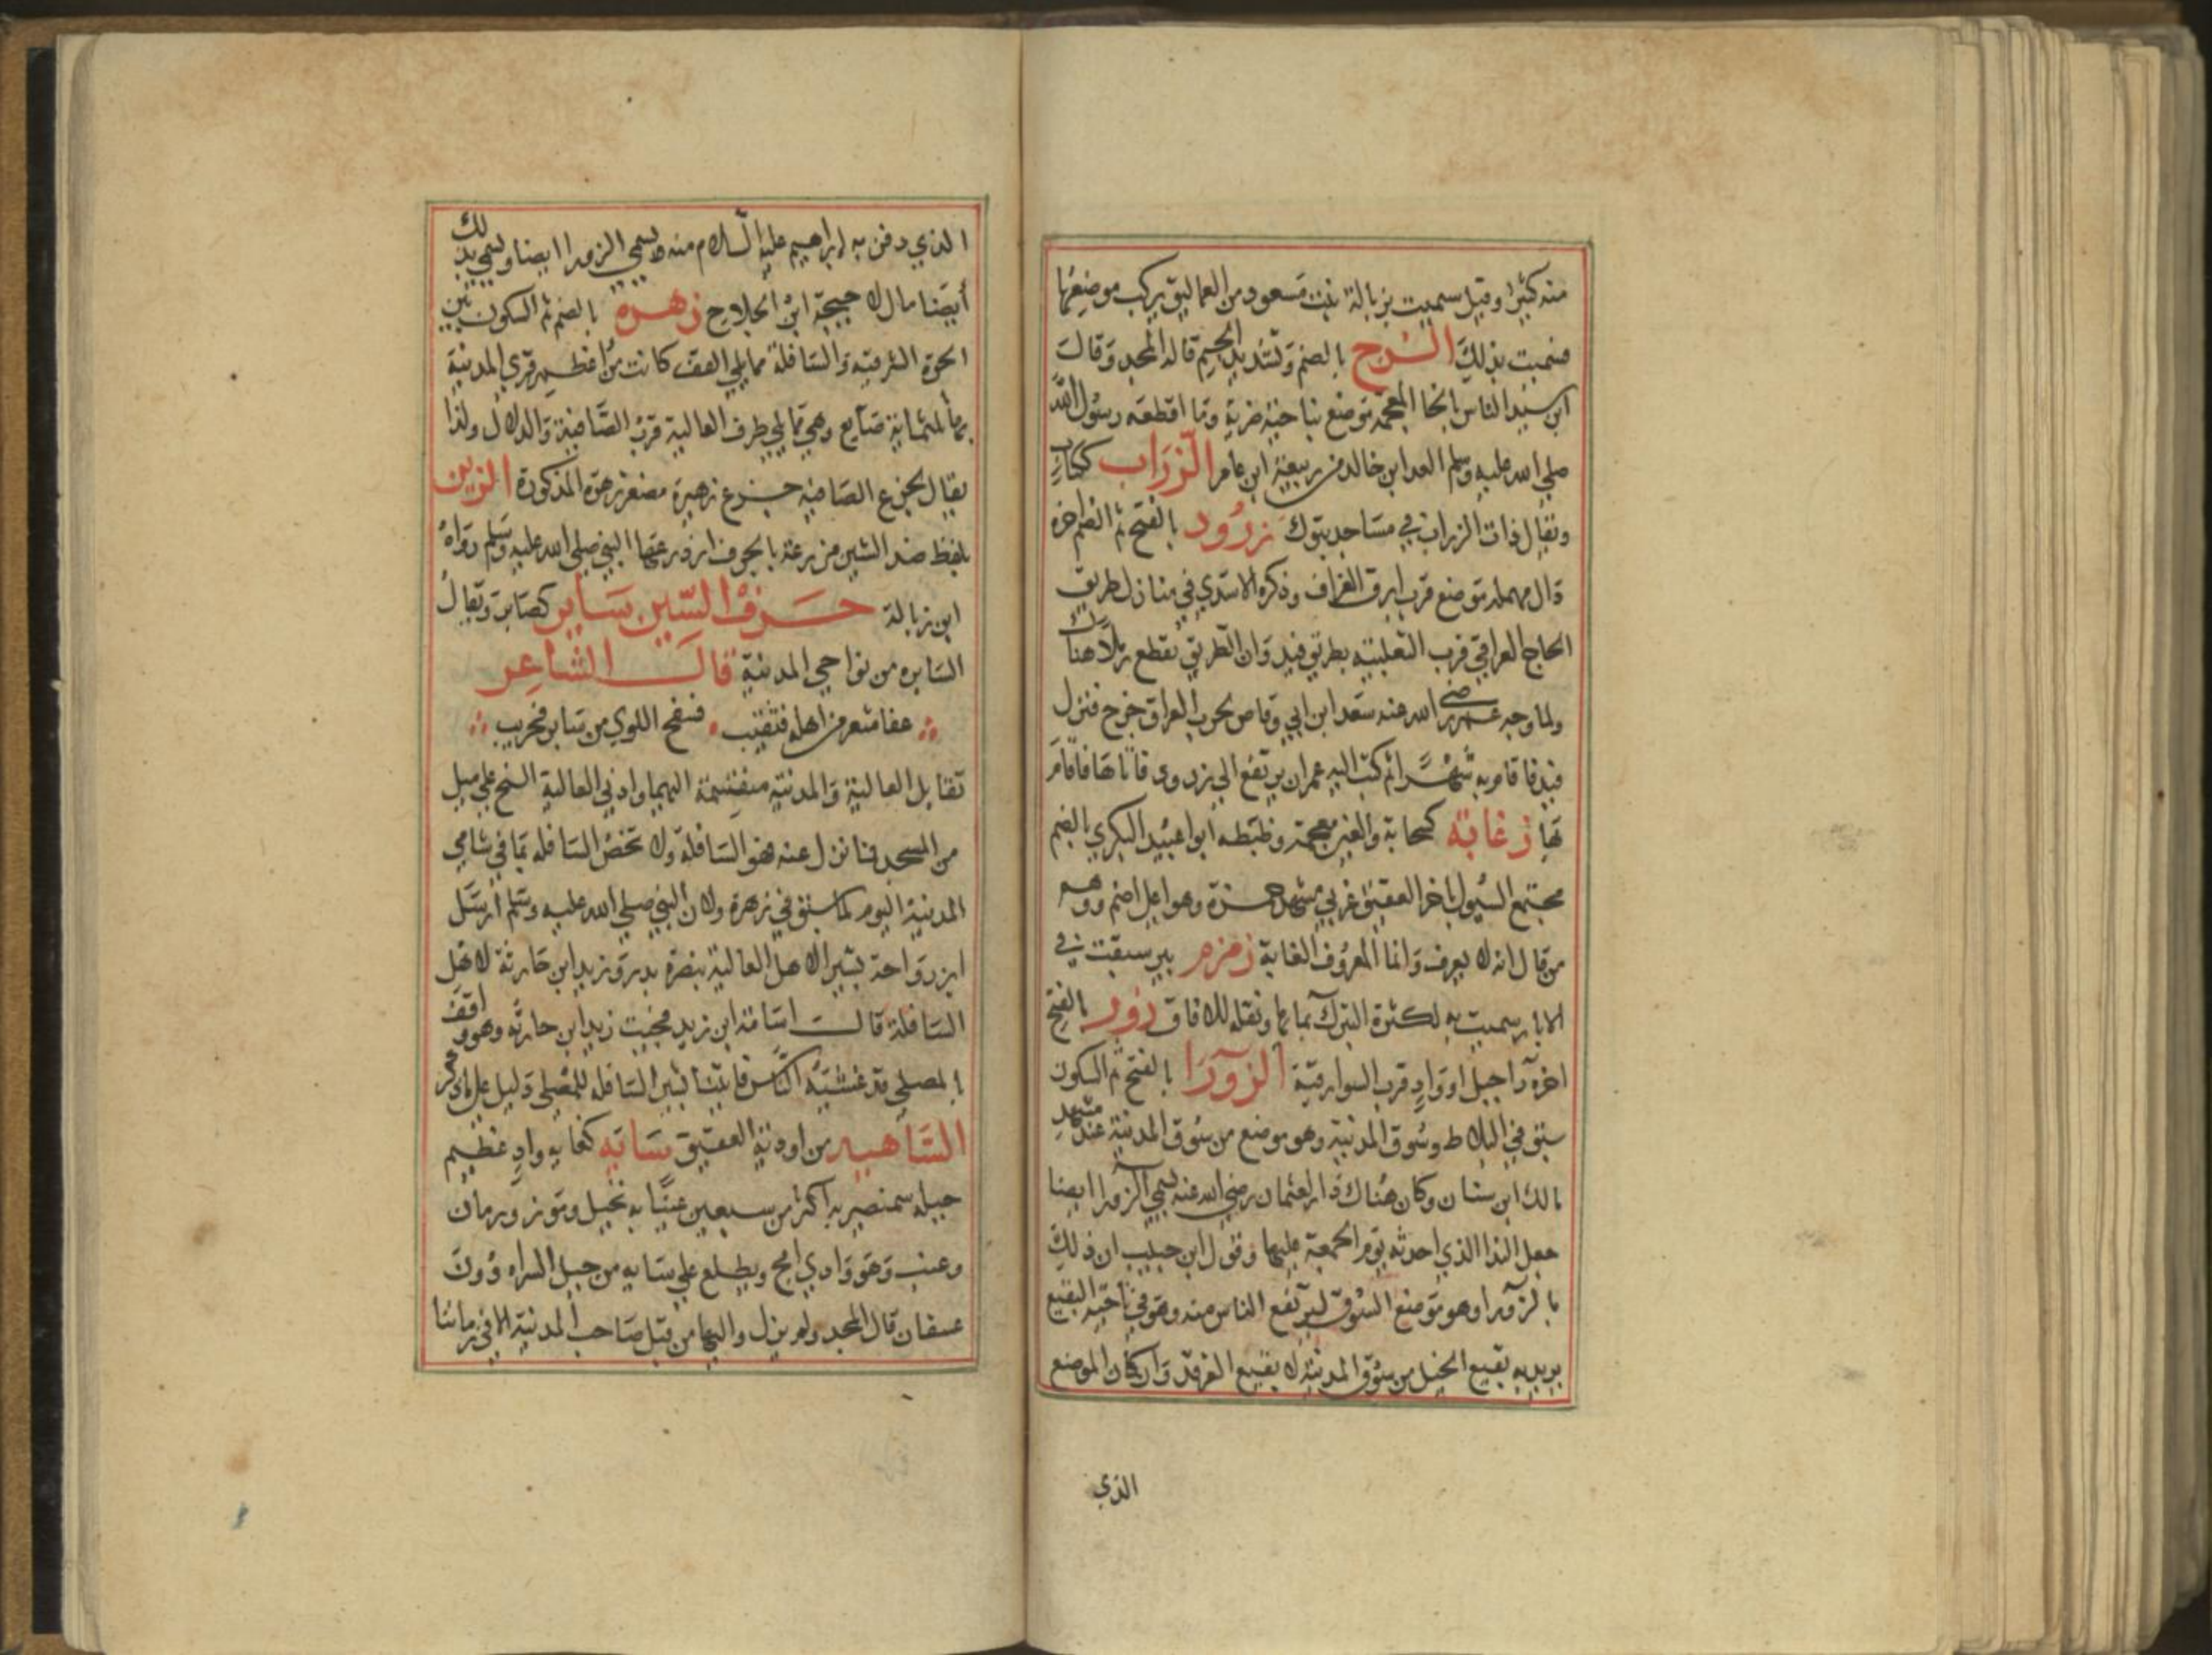 منه كثيرا وقيل سميت بزبالة بنت مسعود من العماليق بركب موضعها
فسميت بذلك الزج بالضم وتشديد الجيم قاله المجد وقال
ابن سيد الناس بالخا المعجمة موضع بناحية ضرية وما اقطعه رسول الله
صلي الله عليه وسلم العدا بن خالد من ربيعة ابن عامر الزراب ككتاب
ويقال ذات الزراب في مساجد تبوك زرود بالفتح ثم الضم اخره
دال مهملة موضع قرب ابرق العزاف وذكره الاسدي في منازل طريق
الحاج العراقي قرب الثعلبية بطريق فيد وان الطريق يقطع رملا هناك
ولما وجه عمر رضي الله عنه سعد ابن ابي وقاص لحرب العراق خرج فنزل
فيد فاقام به شهرا ثم كتب اليه عمر ان يرتفع الي زرود فاتاها فاقام
بها زغابة كسحابة والغين معجمة وضبطه ابوا عبيد البكري بالضم
مجتمع السيول باخر العقيق غربي مشهد حمزة وهو اعلا اضم ووهم
من قال انه لا يعرف وانما المعروف الغابة زمزم بير سبقت في
الابار سميت به لكثرة التبرك بمايها ونقله للافاق زور بالفتح
اخره را جبل او واد قرب السوارقية الزورا بالفتح ثم السكون
سبق في البلاط وسوق المدينة وهو موضع من سوق المدينة عند مشهد
مالك ابن سنان وكان هناك دار لعثمان رضي الله عنه تسمي الزورا ايضا
جعل الندا الذي احدثه يوم الجمعة عليها وقول ابن حبيب ان ذلك
بالزورا وهو موضع السوق ليرتفع الناس منه وهو في ناحية البقيع
يريد به بقيع الخيل من سوق المدينة لا بقيع الغرقد وان كان الموضع
الذي
الذي دفن به ابراهيم عليه السلام منه يسمي الزورا ايضا ويسمي بذلك
أيضا مال لاحيحة ابن الجلاح زهرة بالضم ثم السكون بين
الحرة الشرقية والسافلة مما يلي القف كانت من اعظم قري المدينة
بها ثلثماية صايغ وهي مما يلي طرف العالية قرب الصافية والدلال ولذا
يقال لجزع الصافية جزع زهيرة مصغر زهرة المذكورة الزين
بلفظ ضد الشين مزرعة بالجرف ازدرعها النبي صلي الله عليه وسلم رواه
ابن زبالة حرف السين ساير كصابر ويقال
السايره من نواحي المدينة قال الشاعر
عفا مثعر من اهله فثقيب فسفح اللوي من ساير فجريب
تقابل العالية والمدينة منقسمة اليهما وادني العالية السنح علي ميل
من المسجد فما نزل عنه فهو السافلة ولا تختص السافلة بما في شامي
المدينة اليوم لما سبق في زهرة ولان النبي صلي الله عليه وسلم ارسل
ابن رواحة بشيرا لاهل العالية بنصرة بدر وزيد ابن حارثة لاهل
السافلة قال اسامة ابن زيد فجيت زيد ابن حارثة وهو واقف
بالمصلي قد غشيه الناس فاتيان بشير السافلة للمصلي دليل علي ما ذكر
الساهيه من اودية العقيق ساية كغاية واد عظيم
به اكثر من سبعين عينا به نخيل وموز ورمان
وعنب وهو وادي امج ويطلع علي سايه من جبل السراه دون
عسفان قال المجد ولم يزل واليها من قبل صاحب المدينة الا في زماننا